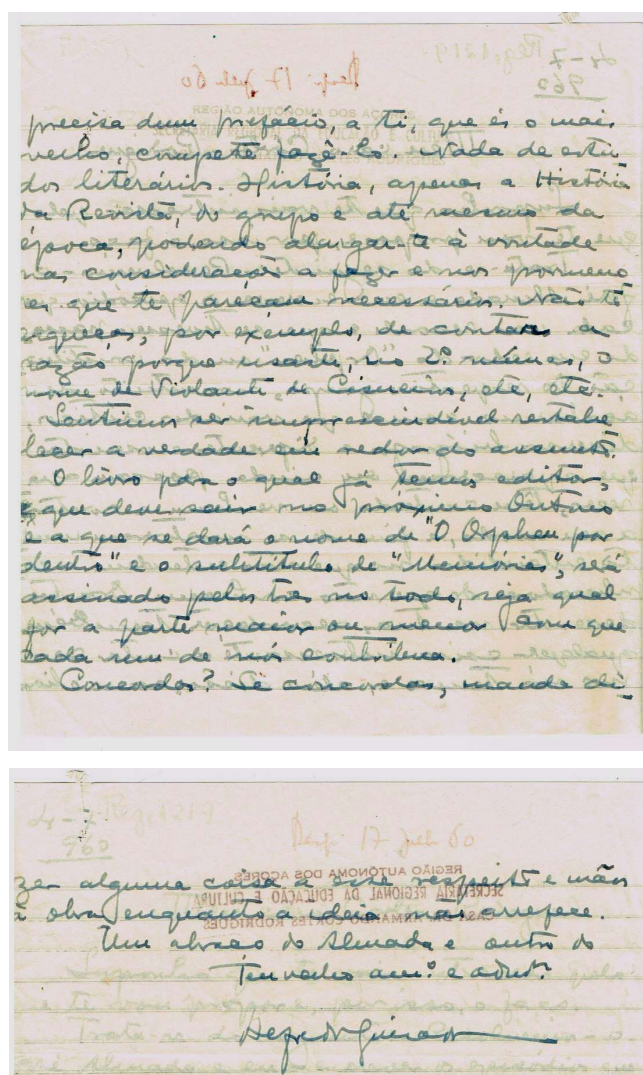 precisa dum prefácio, a ti, que és o mais
velho, compete fazê-lo. Nada de estu
dos literários. História, apenas a História
da Revista, do grupo e até mesmo da
época, podendo alargar-te à vontade
nas considerações a fazer e nos pormeno
res que te pareçam necessários. Não te
esqueças, por exemplo, de contar a
razão porque usaste, no 2º número, o
nome de Violante de Cisneiros, etc, etc.
Sentimos ser imprescindível restabe
lecer a verdade em redor do assunto.
O livro para o qual já temos editor,
e que deve sair no próximo Outono
e a que se dará o nome de "O Orpheu por
dentro" e o subtítulo de "Memórias", será
assinado pelos três no todo, seja qual
for a parte maior ou menor com que
cada um de nós contribua.
Concordas? Se concordas, manda di-
Resp. 17 Julh 60
REGIÃO AUTÓNOMA DOS AÇORES
SECRETARIA REGIONAL DA EDUCAÇÃO E CULTURA
CASA DR. ARMANDO CÔRTES RODRIGUES
zer alguma coisa a esse respeito e mãos
à obra enquanto a ideia não arrefece.
Um abraço do Almada e outro do
Teu velho am.º e admr.
Alfredo Guisado